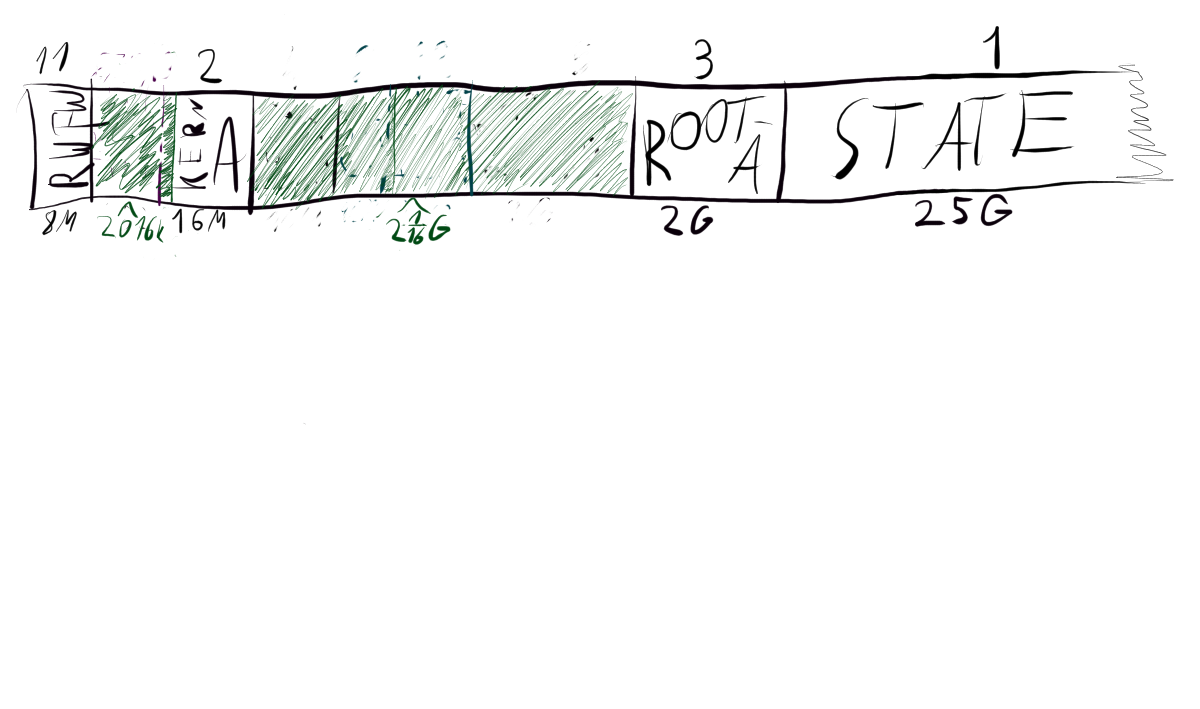 11 2 3 1
RWFW KERN A ROOT-A STATE
8M 2016k 16M 2 1/16 G 2G 25G